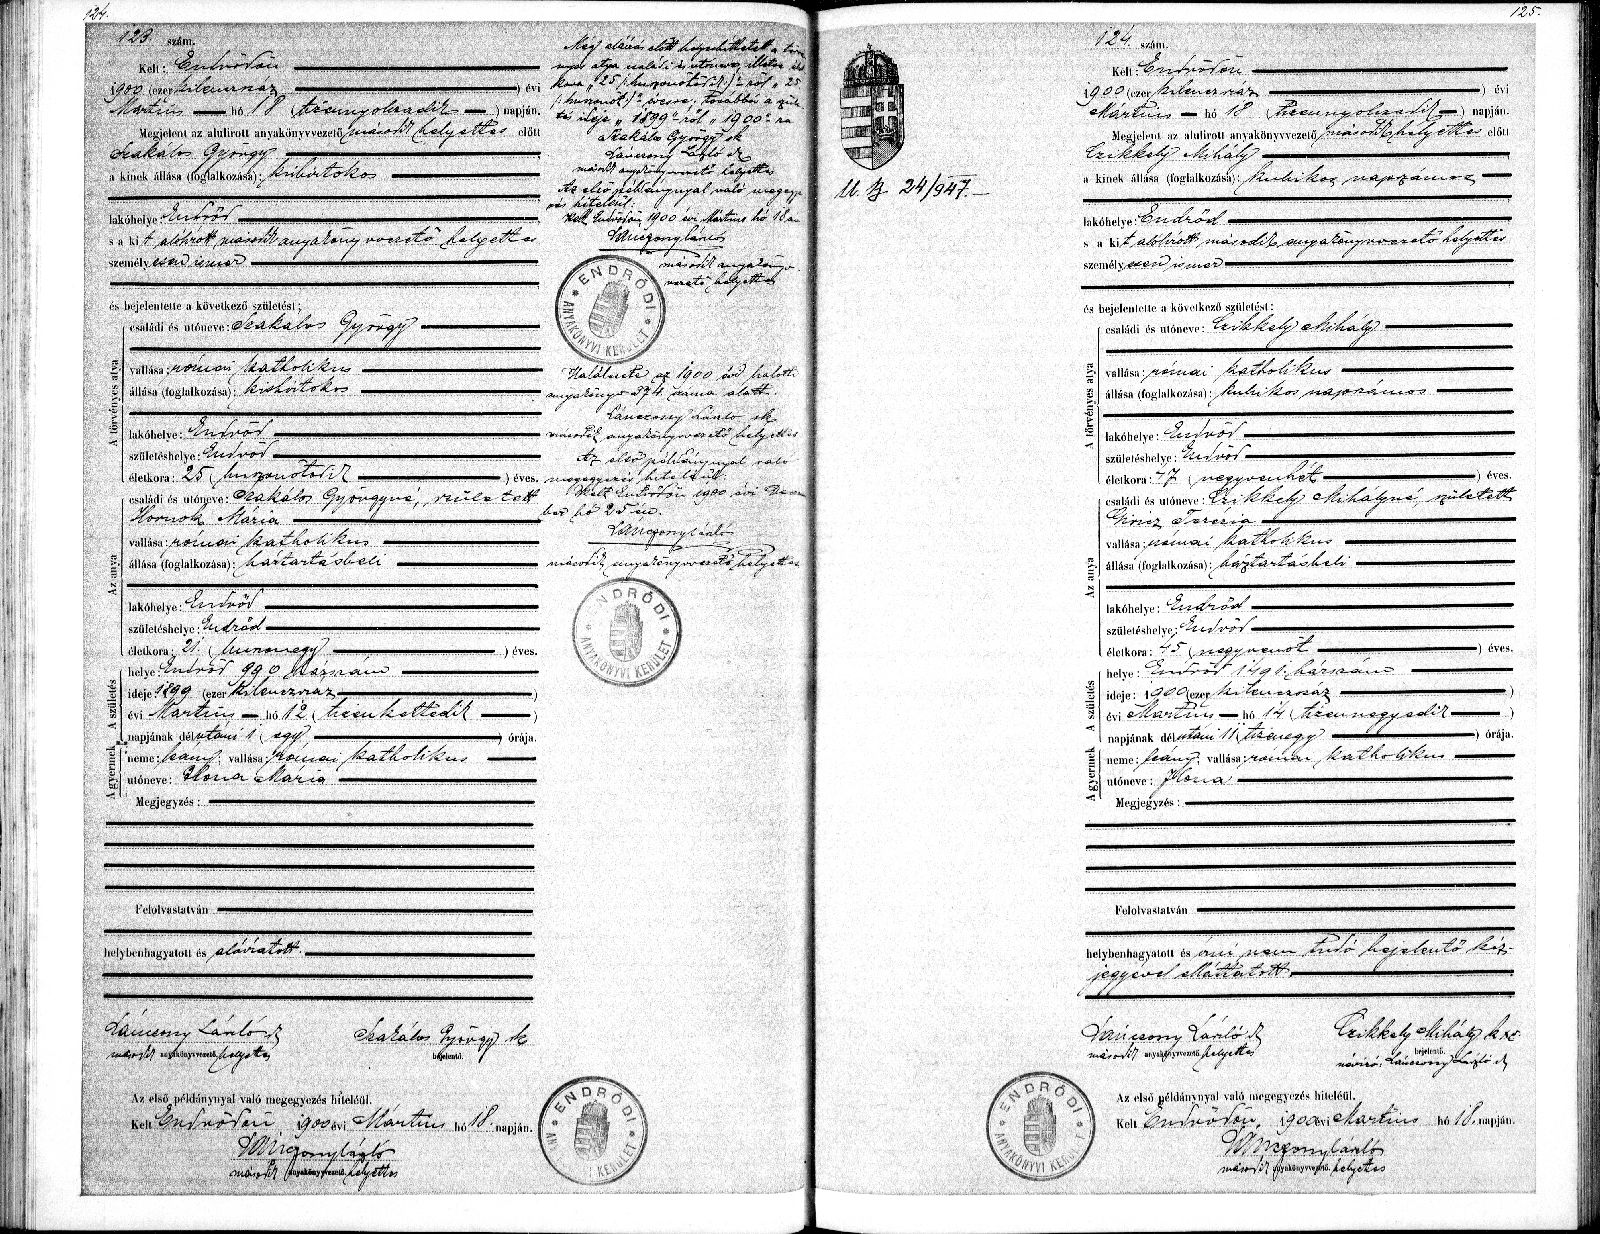 124.
123. szám.
Kelt: Endrődön
1900 (ezer kilenczszáz ) évi
Martius hó 18 (tizennyolczadik ) napján.
Megjelent az alulirott anyakönyvvezető másodk helyettes előtt
Szakálos György
a kinek állása (foglalkozása): kisbirtokos
lakóhelye: Endrőd
s a kit alólirott másodk anyakönyvvezető helyettes
személyesen ismer
és bejelentette a következő születést:
A törvényes atya
családi és utóneve: Szakálos György
vallása: római katholikus
állása (foglalkozása): kisbirtokos
lakóhelye: Endrőd
születéshelye: Endrőd
életkora: 25 (huszonötödik ) éves.
Az anya
családi és utóneve: Szakálos Györgyné, született
Hornok Mária
vallása: római katholikus
állása (foglalkozása): háztartásbeli
lakóhelye: Endrőd
születéshelye: Endrőd
életkora: 21 (huszonegy ) éves.
A születés
helye: Endrőd 990 házszám
ideje: 1899 (ezer kilenczszáz )
évi Martius hó 12 (tizenkettedik )
napjának délutáni 1 (egy ) órája.
A gyermek
neme: leány; vallása: római katholikus
utóneve: Ilona Maria
Megjegyzés:
Felolvastatván
helybenhagyatott és aláiratott.
Lánczony László sk
másodk anyakönyvvezető helyettes
Szakálos György sk
bejelentő.
Az első példánynyal való megegyezés hiteléül.
Kelt Endrődön, 1900 évi Mártius hó 18. napján.
Lánczony László
másodk anyakönyvvezető helyettes
Még aláirás előtt helyesbittetett a törvé-
nyes atya családi és utóneve, illetve élet
kora "25 (huszonötödik)"-ről "25
(huszonöt)"-re; továbbá a szüle-
tés ideje "1899"-ről "1900"-ra
Szakálos György sk
Lánczony László sk
másodk anyakönyvvezető helyettes
Az első példánynyal való megegye-
zés hiteléül:
Kelt Endrődön 1900 évi Mártius hó 18-án
Lánczony László
másodk anyakönyv-
vezető helyettes
ENDRŐDI
ANYAKÖNYVI KERÜLET
Halálesete az 1900 évi halotti
anyakönyv 374 száma alatt.
Lánczony László sk
másodk anyakönyvvezető helyettes
Az első példánynyal való
megegyezés hiteléül
Kelt Endrődön 1900 évi Decem-
ber hó 25-én.
Lánczony László
második anyakönyvvezető helyettes
ENDRŐDI
ANYAKÖNYVI KERÜLET
ENDRŐDI
ANYAKÖNYVI KERÜLET
24/947.
125.
124. szám.
Kelt: Endrődön
1900 (ezer kilenczszáz ) évi
Mártius hó 18 (tizennyolczadik ) napján.
Megjelent az alulirott anyakönyvvezető másodk helyettes előtt
Czikkely Mihály
a kinek állása (foglalkozása): kubikos napszámos
lakóhelye: Endrőd
s a kit alólirott második anyakönyvvezető helyettes
személyesen ismer
és bejelentette a következő születést:
A törvényes atya
családi és utóneve: Czikkely Mihály
vallása: római katholikus
állása (foglalkozása): kubikos napszámos
lakóhelye: Endrőd
születéshelye: Endrőd
életkora: 47 (negyvenhét ) éves.
Az anya
családi és utóneve: Czikkely Mihályné, született
Giricz Terézia
vallása: római katholikus
állása (foglalkozása): háztartásbeli
lakóhelye: Endrőd
születéshelye: Endrőd
életkora: 45 (negyvenöt ) éves.
A születés
helye: Endrőd 1491. házszám
ideje: 1900 (ezer kilenczszáz )
évi Martius hó 14 (tizennegyedik )
napjának délutáni 11 (tizenegy ) órája.
A gyermek
neme: leány; vallása: római katholikus
utóneve: Ilona
Megjegyzés:
Felolvastatván
helybenhagyatott és irni nem tudó bejelentő kéz-
jegyével elláttatott.
Lánczony László sk
másodk anyakönyvvezető helyettes
Czikkely Mihály
bejelentő.
névíró, Lánczony László sk
Az első példánynyal való megegyezés hiteléül.
Kelt Endrődön, 1900 évi Martius hó 18. napján.
Lánczony László
másodk anyakönyvvezető helyettes
ENDRŐDI
ANYAKÖNYVI KERÜLET